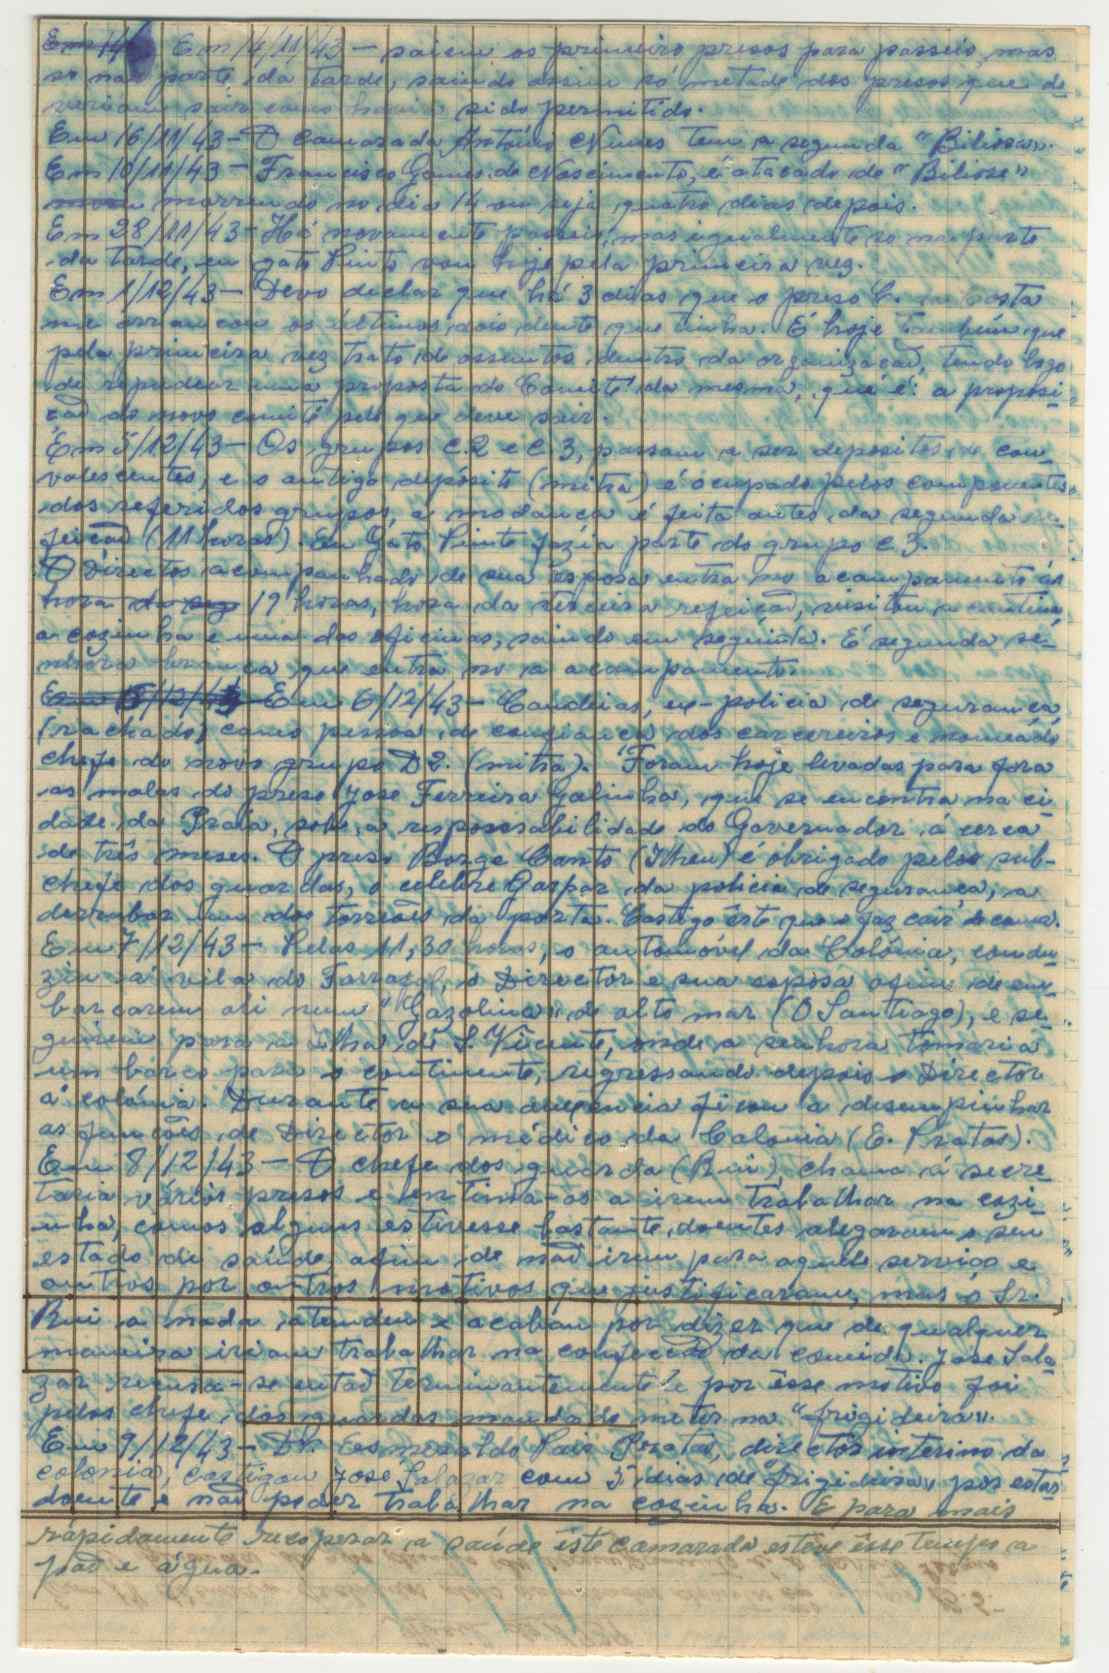 Em 14 Em 14/11/43 — saiem os primeiro presos para passeio, mas
so na parte da tarde, saindo assim só metade dos presos que de-
veriam sair como havia sido permitido.
Em 16/11/43 — O Camarada António Nunes tem a segunda "Biliosa".
Em 10/11/43 — Francisco Gomes de Nascimento, é atacado de "Biliose"
morrendo no dia 14 ou seja quatro dias depois.
Em 28/11/43 — Há novamente passeio, mas igualmente só na parte
da tarde, eu gato Pinto vou hoje pela primeira vez.
Em 1/12/43 — Devo declar que há 3 dias que o preso Costa
me arrancou os últimos dois dente que tinha. É hoje tambêm que
pela primeira vez trato de assuntos dentro da organização, tendo logo
de repudear uma proposta do Comité da mesma, que é: a proposi-
ção do novo comité pelo que deve sair.
Em 5/12/43 — Os grupos C.2 e C.3, passam a ser depositos e con-
valescentes, e o antigo depósito (mitra) é ocupado pelos componentes
dos referidos grupos, a modança é feita antes da segunda re-
feição (11 horas). Eu Gato Pinto fazia parte do grupo C.3.
O Director acompanhado de sua esposa entra no acampamento ás
hora da seg 17 horas, hora da terceira refeição, visitou a cantina
a cozinha e uma das oficinas, saindo em seguida. É segunda se-
nhora branca que entra no a acampamento.
Em 5/12/43 Em 6/12/43 — Candeias, ex-policia de segurança
(rachado) como pessoa de confiança dos carcereiros é nomeádo
chefe do novo grupo D2. (mitra). Foram hoje levadas para fora
as malas do preso Jose Ferreira Galinha, que se encontra na ci-
dade da Praia, sobe a responsabilidade do Governador á cerca
de três meses. O preso Borge Canto (Ilheu) é obrigado pelos sub-
chefe dos guardas, o celebre Gaspar da policia de segurança, a
derrubar um dos torreões da porta. Castigo êste que o faz cair de cama.
Em 7/12/43 — Pelas 11,30 horas, o automóvel da Colónia, condu-
zia á vila do Tarrafal, o Director e sua esposa afim de em-
barcarem ali num "Gazolina" de alto mar (O Santiago), e se-
guirem para a ilha de S. Vicente, onde a senhora tomaria
um barco para o continente, regressando depois o Director
á colónia. Durante a sua ausência ficou a desempenhar
as funções de Director o médico da Colonia (E. Pratas).
Em 8/12/43 — O chefe dos guarda (Rui) chama á secre-
taria vários presos e entima-os a irem trabalhar na cozi-
nha, como alguns estivesse bastante doentes alegaram o seu
estado de saúde, afim de não irem para aquele serviço e
outros por outros motivos que justificaram, mas o Sr.
Rui a nada atendeu e acabam por dizer que de qualquer
maneira iriam trabalhar na confecção da comida. Jose Sala-
zar recusa-se então terminantemente e por êsse motivo foi
pelos chefe dos guardas mandado meter na "frigideira".
Em 9/12/43 — Dr. Esmeraldo Pais Pratas, director interino da
colonia, castigou José Salazar com 5 dias de frigideira, por estar
doente e não poder trabalhar na cozinha. E para mais
rápidamente recoperar a saúde êste camarada esteve êsse tempo a
pão e água.